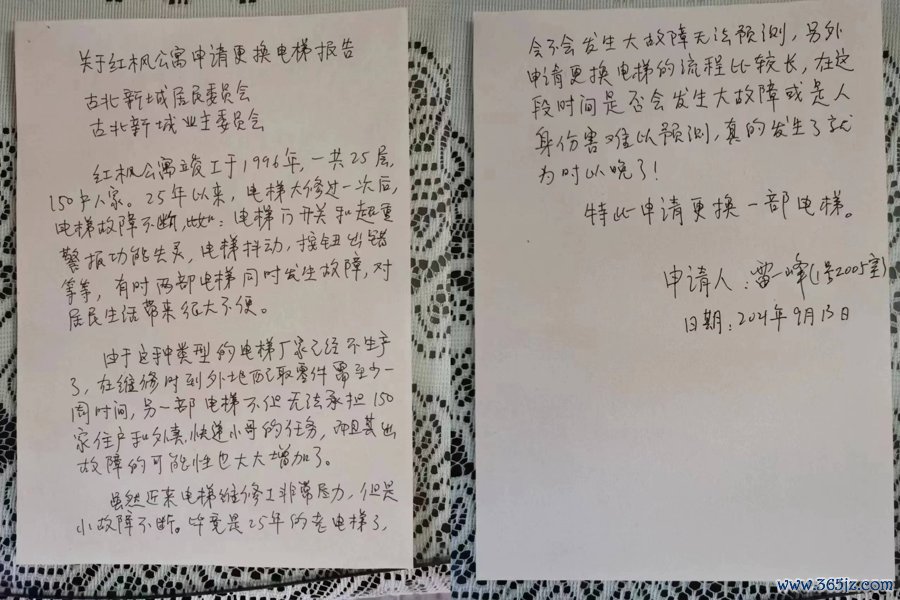 关于红枫公寓申请更换电梯报告
古北新城居民委员会
古北新城业主委员会
红枫公寓竣工于1996年，一共25层，
150户人家。25年以来，电梯大修过一次后，
电梯故障不断，比如：电梯门开关和超重
警报功能失灵，电梯抖动，按钮出错
等等，有时两部电梯同时发生故障，对
居民生活带来很大不便。
由于这种类型的电梯厂家已经不生产
了，在维修时到外地配取零件需至少一
周时间，另一部电梯不但无法承担150
家住户和外卖、快递小哥的任务，而且其出
故障的可能性也大大增加了。
虽然近来电梯维修工非常尽力，但是
小故障不断。毕竟是25年的老电梯了，
会不会发生大故障无法预测，另外
申请更换电梯的流程比较长，在这
段时间是否会发生大故障或是人
身伤害难以预测，真的发生了就
为时以晚了！
特此申请更换一部电梯。
申请人：雷一峰(1号2005室)
日期：2021年9月13日
www.365jz.com